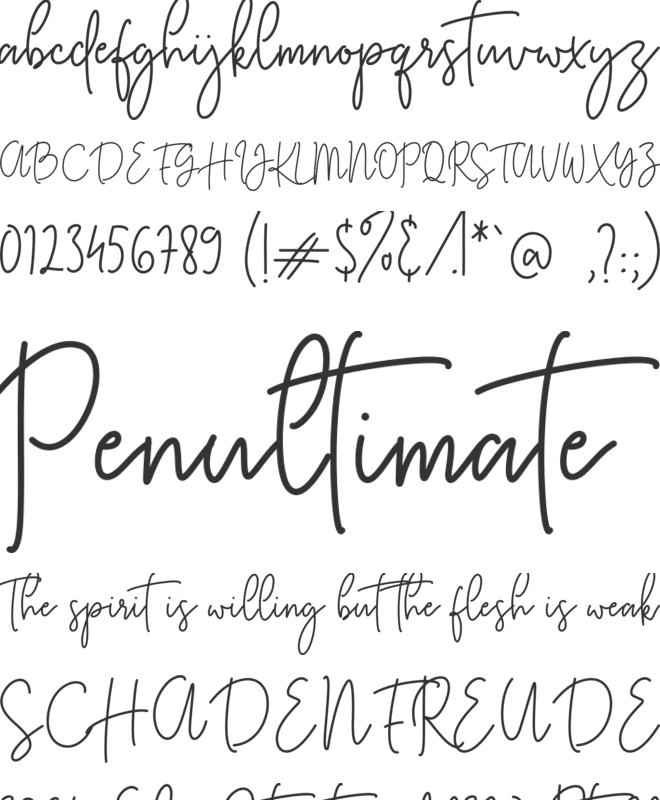 abcdefghijklmnopqrstuvwxyz
ABCDEFGHIJKLMNOPQRSTUVWXYZ
0123456789 (!#$%&/\.|*`@ ,?:;)
Penultimate
The spirit is willing but the flesh is weak
SCHADENFREUDE